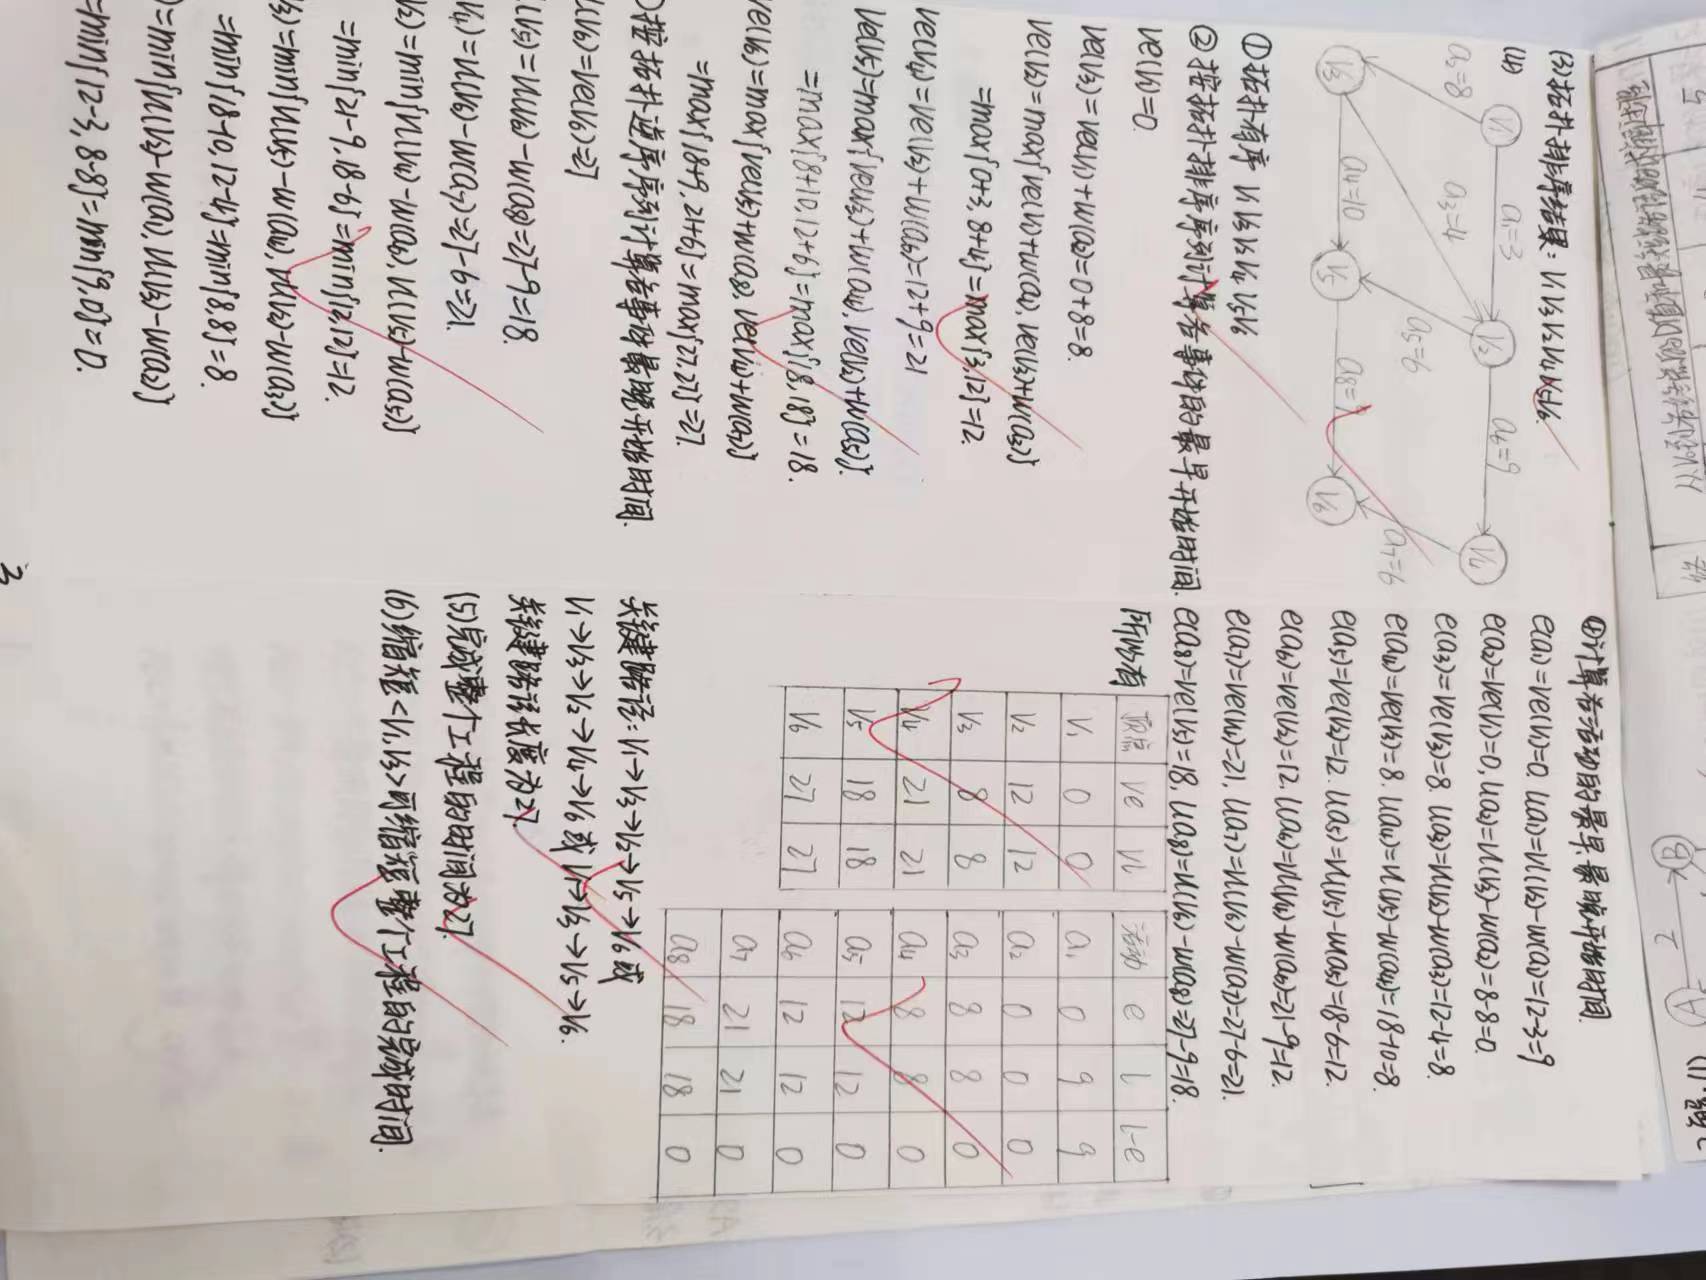 2
A
B
5
(3)拓扑排序结果: V1V3V2V4V5V6.
(4)
V1
a1=3
V2
a6=9
V4
a2=8
a3=4
a5=6
a7=6
V3
a4=10
V5
a8=9
V6
①拓扑有序 V1V3V2V4V5V6
②按拓扑排序序列计算各事件的最早开始时间.
ve(V1)=0.
ve(V3)=ve(V1)+w(a2)=0+8=8.
ve(V2)=max{ve(V1)+w(a1), ve(V3)+w(a3)}
=max{0+3, 8+4}=max{3,12}=12.
ve(V4)=ve(V2)+w(a6)=12+9=21
ve(V5)=max{ve(V3)+w(a4), ve(V2)+w(a5)}.
=max{8+10, 12+6}=max{18, 18}=18.
ve(V6)=max{ve(V5)+w(a8), ve(V4)+w(a7)}
=max{18+9, 21+6}=max{27,27}=27.
)按拓扑逆序序列计算各事件最晚开始时间.
l(V6)=ve(V6)=27
l(V5)=vl(V6)-w(a8)=27-9=18.
V4)=vl(V6)-w(a7)=27-6=21.
V2)=min{vl(V4)-w(a6), vl(V5)-w(a5)}
=min{21-9, 18-6}=min{12,12}=12.
V3)=min{vl(V5)-w(a4), vl(V2)-w(a3)}
=min{18-10, 12-4}=min{8,8}=8.
)=min{vl(V2)-w(a1), vl(V3)-w(a2)}
=min{12-3, 8-8}=min{9,0}=0.
④计算各活动的最早、最晚开始时间.
e(a1)=ve(V1)=0. l(a1)=vl(V2)-w(a1)=12-3=9
e(a2)=ve(V1)=0, l(a2)=vl(V3)-w(a2)=8-8=0.
e(a3)=ve(V3)=8. l(a3)=vl(V2)-w(a3)=12-4=8.
e(a4)=ve(V3)=8. l(a4)=vl(V5)-w(a4)=18-10=8.
e(a5)=ve(V2)=12. l(a5)=vl(V5)-w(a5)=18-6=12.
e(a6)=ve(V2)=12, l(a6)=vl(V4)-w(a6)=21-9=12.
e(a7)=ve(V4)=21, l(a7)=vl(V6)-w(a7)=27-6=21.
e(a8)=ve(V5)=18, l(a8)=vl(V6)-w(a8)=27-9=18.
所以有
顶点 ve vl
V1 0 0
V2 12 12
V3 8 8
V4 21 21
V5 18 18
V6 27 27
活动 e l l-e
a1 0 9 9
a2 0 0 0
a3 8 8 0
a4 8 8 0
a5 12 12 0
a6 12 12 0
a7 21 21 0
a8 18 18 0
关键路径: V1→V3→V2→V5→V6 或
V1→V3→V2→V4→V6 或 V1→V3→V5→V6.
关键路径长度为27.
(5)完成整个工程的时间为27.
(6)缩短<V1,V3>可缩短整个工程的完成时间.
3